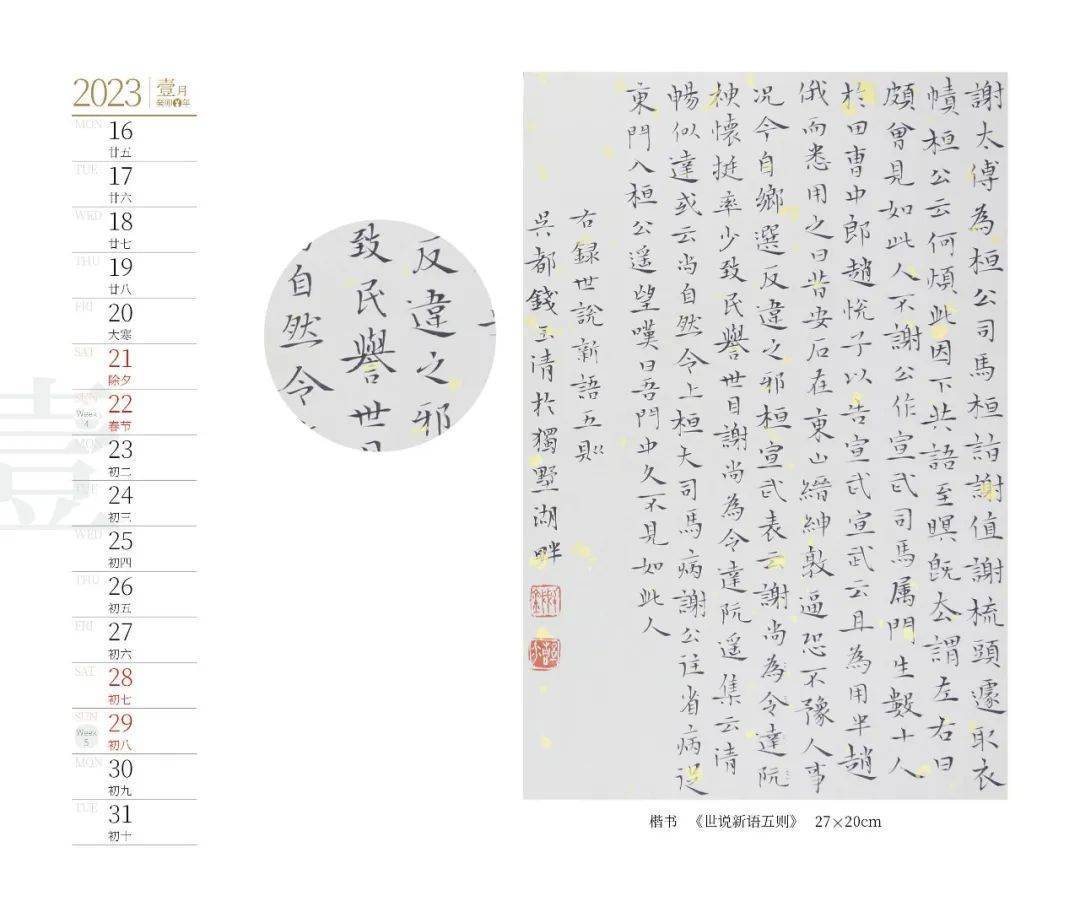 2023
壹月
癸卯年
MON 16 廿五
TUE 17 廿六
WED 18 廿七
THU 19 廿八
FRI 20 大寒
SAT 21 除夕
SUN Week 4 22 春节
MON 23 初二
TUE 24 初三
WED 25 初四
THU 26 初五
FRI 27 初六
SAT 28 初七
SUN Week 5 29 初八
MON 30 初九
TUE 31 初十
壹
反違之邪
致民譽世
自然令
謝太傅為桓公司馬桓詣謝值謝梳頭遽取衣
幘桓公云何煩此因下共語至暝既去謂左右曰
頗曾見如此人不謝公作宣武司馬属門生數十人
於田曹中郎趙悅子以告宣武宣武云且為用半趙
俄而悉用之曰昔安石在東山縉紳敦逼恐不豫人事
况今自鄉選反違之邪桓宣武表云謝尚為令達阮
神懷挺率少致民譽世目謝尚為令達阮遥集云清
暢似達或云尚自然令上桓大司馬病謝公往省病從
東門入桓公遥望嘆曰吾門中久不見如此人
右録世說新語五則
吳都錢玉清於獨墅湖畔
楷书 《世说新语五则》 27×20cm